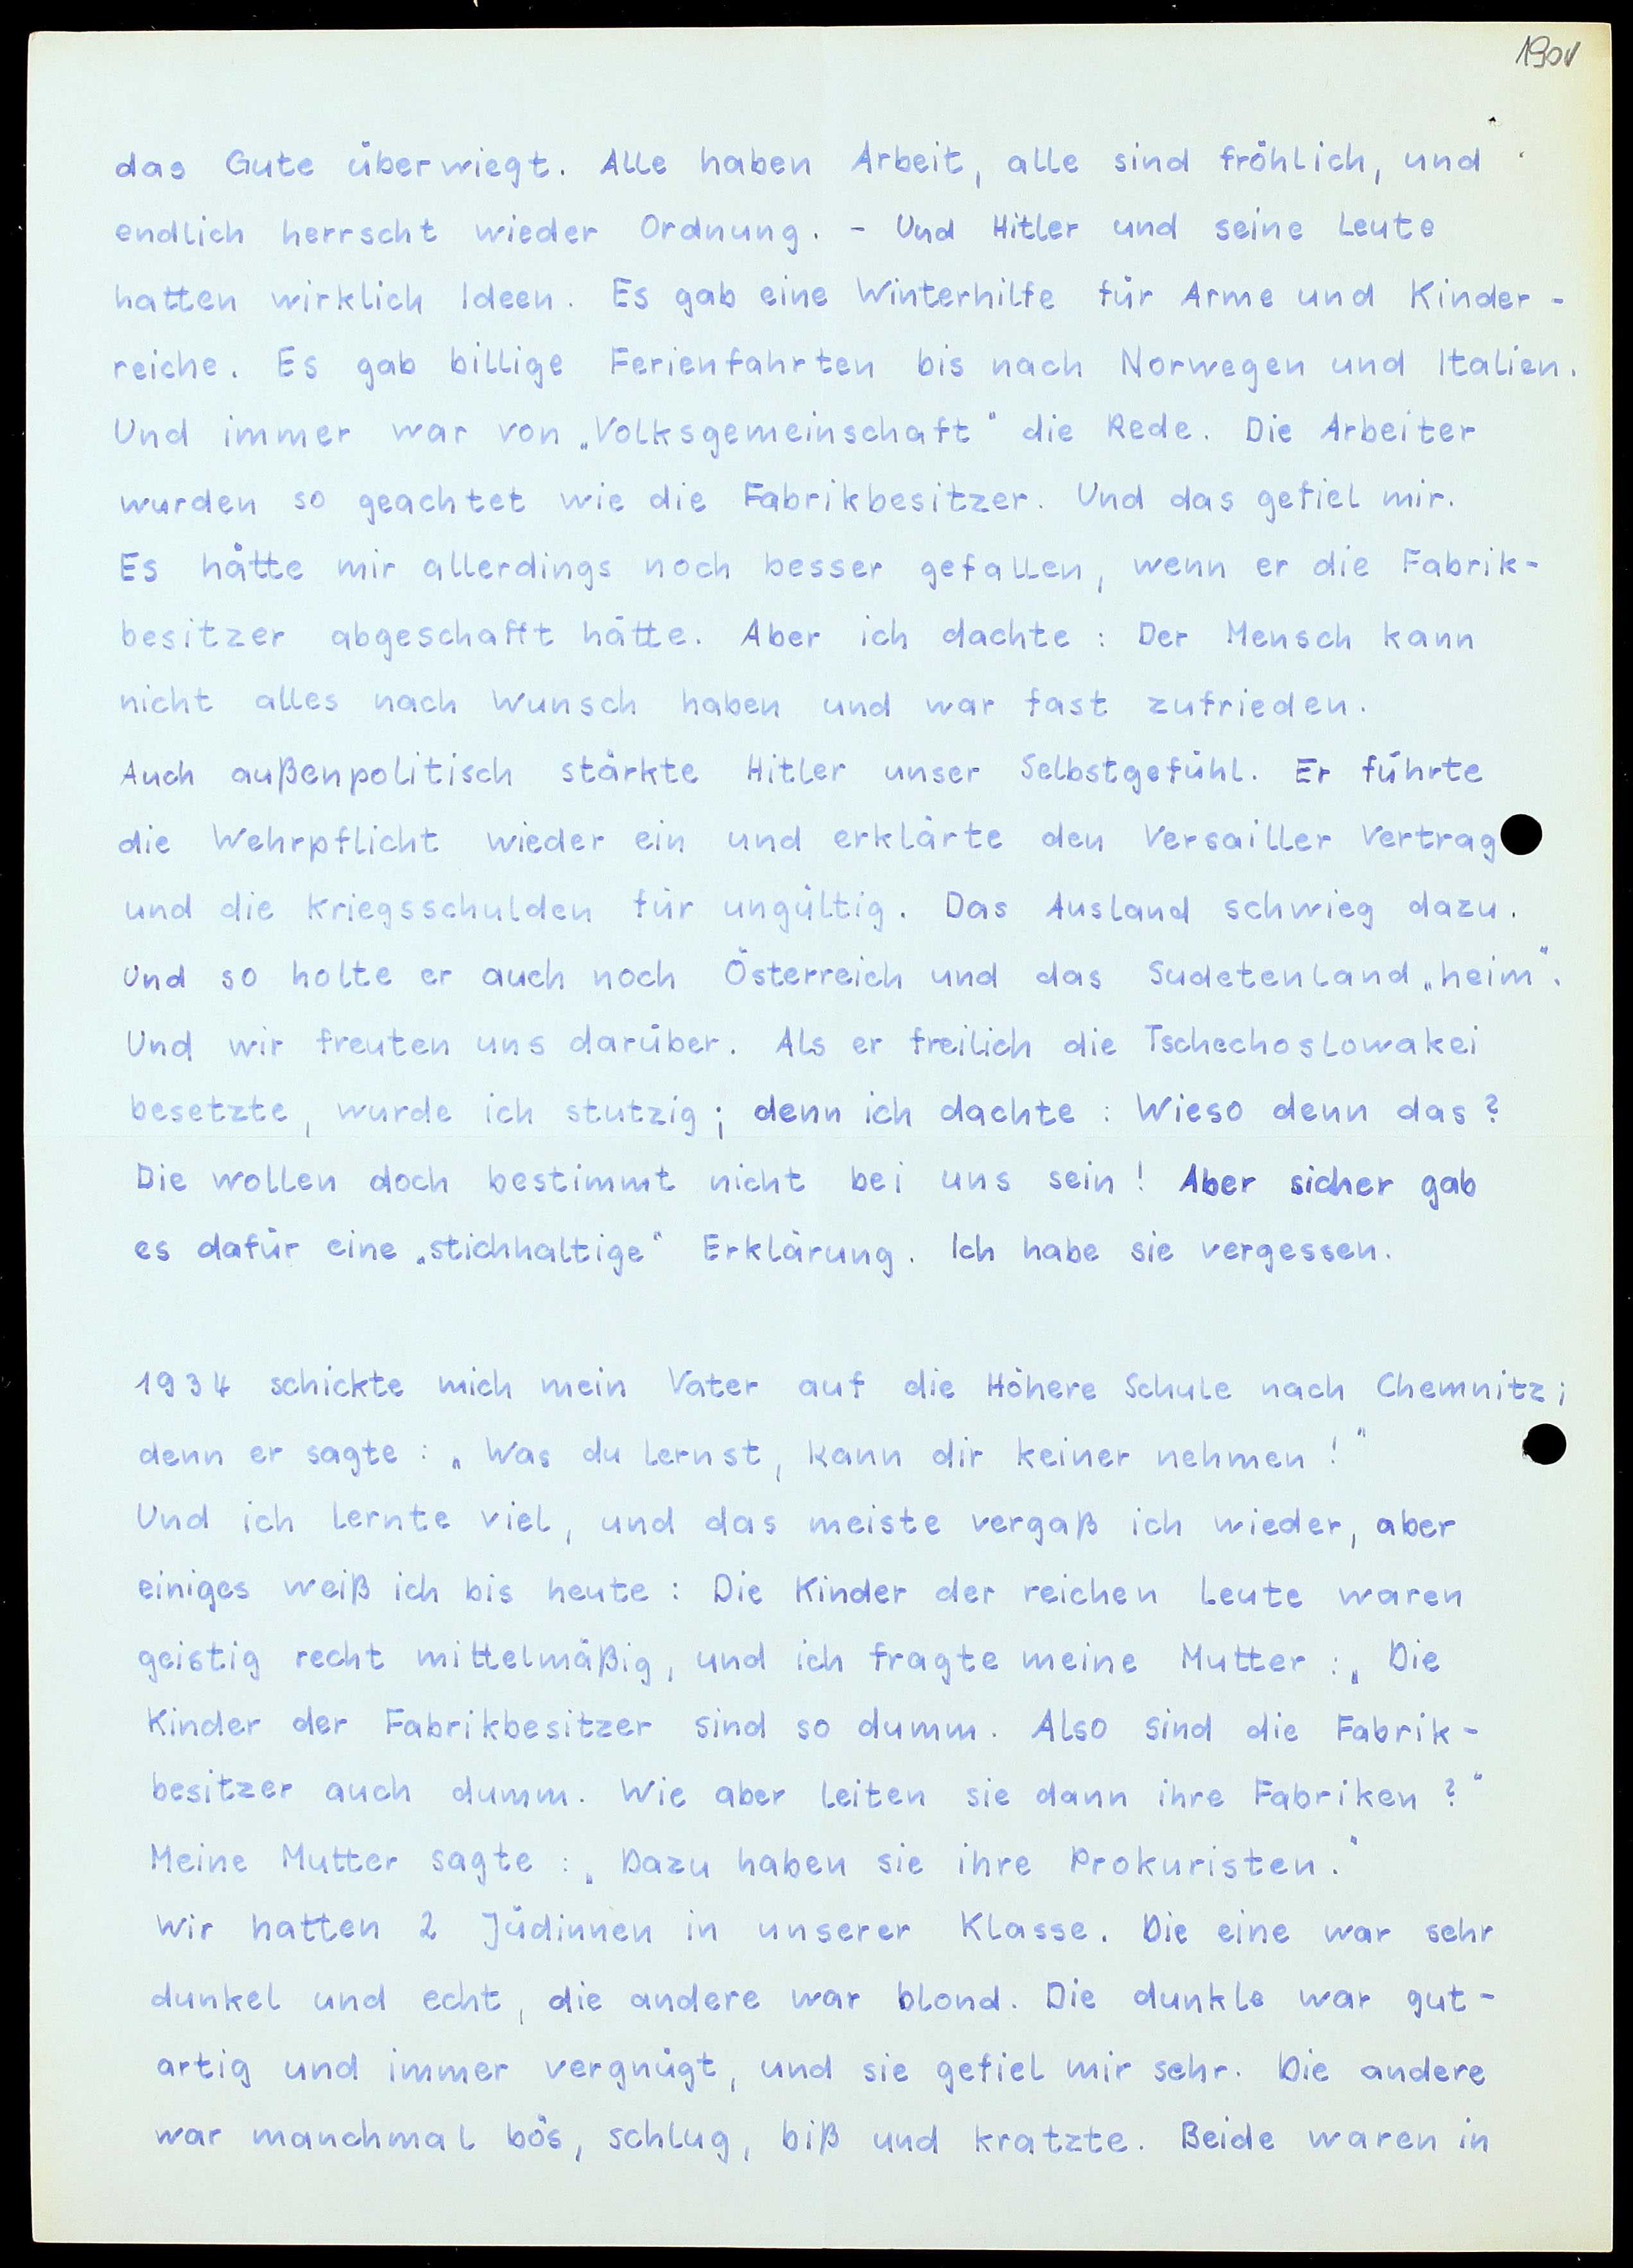 190v
das Gute überwiegt. Alle haben Arbeit, alle sind fröhlich, und
endlich herrscht wieder Ordnung. - Und Hitler und seine Leute
hatten wirklich Ideen. Es gab eine Winterhilfe für Arme und Kinder-
reiche. Es gab billige Ferienfahrten bis nach Norwegen und Italien.
Und immer war von „Volksgemeinschaft“ die Rede. Die Arbeiter
wurden so geachtet wie die Fabrikbesitzer. Und das gefiel mir.
Es hätte mir allerdings noch besser gefallen, wenn er die Fabrik-
besitzer abgeschafft hätte. Aber ich dachte: Der Mensch kann
nicht alles nach Wunsch haben und war fast zufrieden.
Auch außenpolitisch stärkte Hitler unser Selbstgefühl. Er führte
die Wehrpflicht wieder ein und erklärte den Versailler Vertrag
und die Kriegsschulden für ungültig. Das Ausland schwieg dazu.
Und so holte er auch noch Österreich und das Sudetenland „heim“.
Und wir freuten uns darüber. Als er freilich die Tschechoslowakei
besetzte, wurde ich stutzig; denn ich dachte: Wieso denn das?
Die wollen doch bestimmt nicht bei uns sein! Aber sicher gab
es dafür eine „stichhaltige“ Erklärung. Ich habe sie vergessen.
1934 schickte mich mein Vater auf die Höhere Schule nach Chemnitz;
denn er sagte: „Was du lernst, kann dir keiner nehmen!“
Und ich lernte viel, und das meiste vergaß ich wieder, aber
einiges weiß ich bis heute: Die Kinder der reichen Leute waren
geistig recht mittelmäßig, und ich fragte meine Mutter: „Die
Kinder der Fabrikbesitzer sind so dumm. Also sind die Fabrik-
besitzer auch dumm. Wie aber leiten sie dann ihre Fabriken?“
Meine Mutter sagte: „Dazu haben sie ihre Prokuristen.“
Wir hatten 2 Jüdinnen in unserer Klasse. Die eine war sehr
dunkel und echt, die andere war blond. Die dunkle war gut-
artig und immer vergnügt, und sie gefiel mir sehr. Die andere
war manchmal bös, schlug, biß und kratzte. Beide waren in